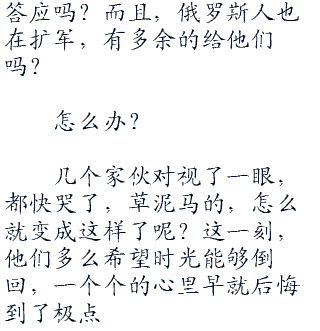 答应吗？而且，俄罗斯人也
在扩军，有多余的给他们
吗？
怎么办？
几个家伙对视了一眼，
都快哭了，草泥马的，怎么
就变成这样了呢？这一刻，
他们多么希望时光能够倒
回，一个个的心里早就后悔
到了极点